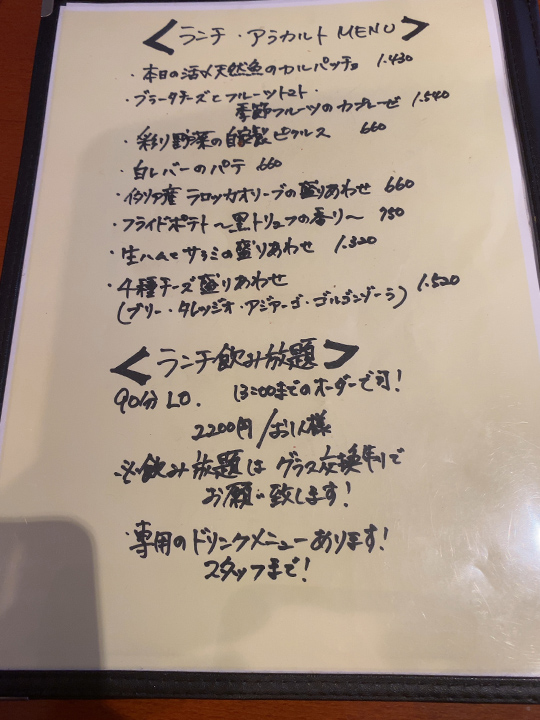 <ランチ・アラカルト MENU>
・本日の活〆天然魚のカルパッチョ 1.430
・ブラータチーズとフルーツトマト・
季節フルーツのカプレーゼ 1.540
・彩り野菜の自家製ピクルス 660
・白レバーのパテ 660
・イタリア産 ラロッカオリーブの盛りあわせ 660
・フライドポテト〜黒トリュフの香り〜 950
・生ハムとサラミの盛りあわせ 1.320
・4種チーズ盛りあわせ
(ブリー・タレッジオ・アジアーゴ・ゴルゴンゾーラ) 1.520
<ランチ飲み放題>
90分 LO. 13:00までのオーダーで可!
2200円/お1人様
※飲み放題は グラス交換制で
お願い致します!
・専用のドリンクメニューあります!
スタッフまで!